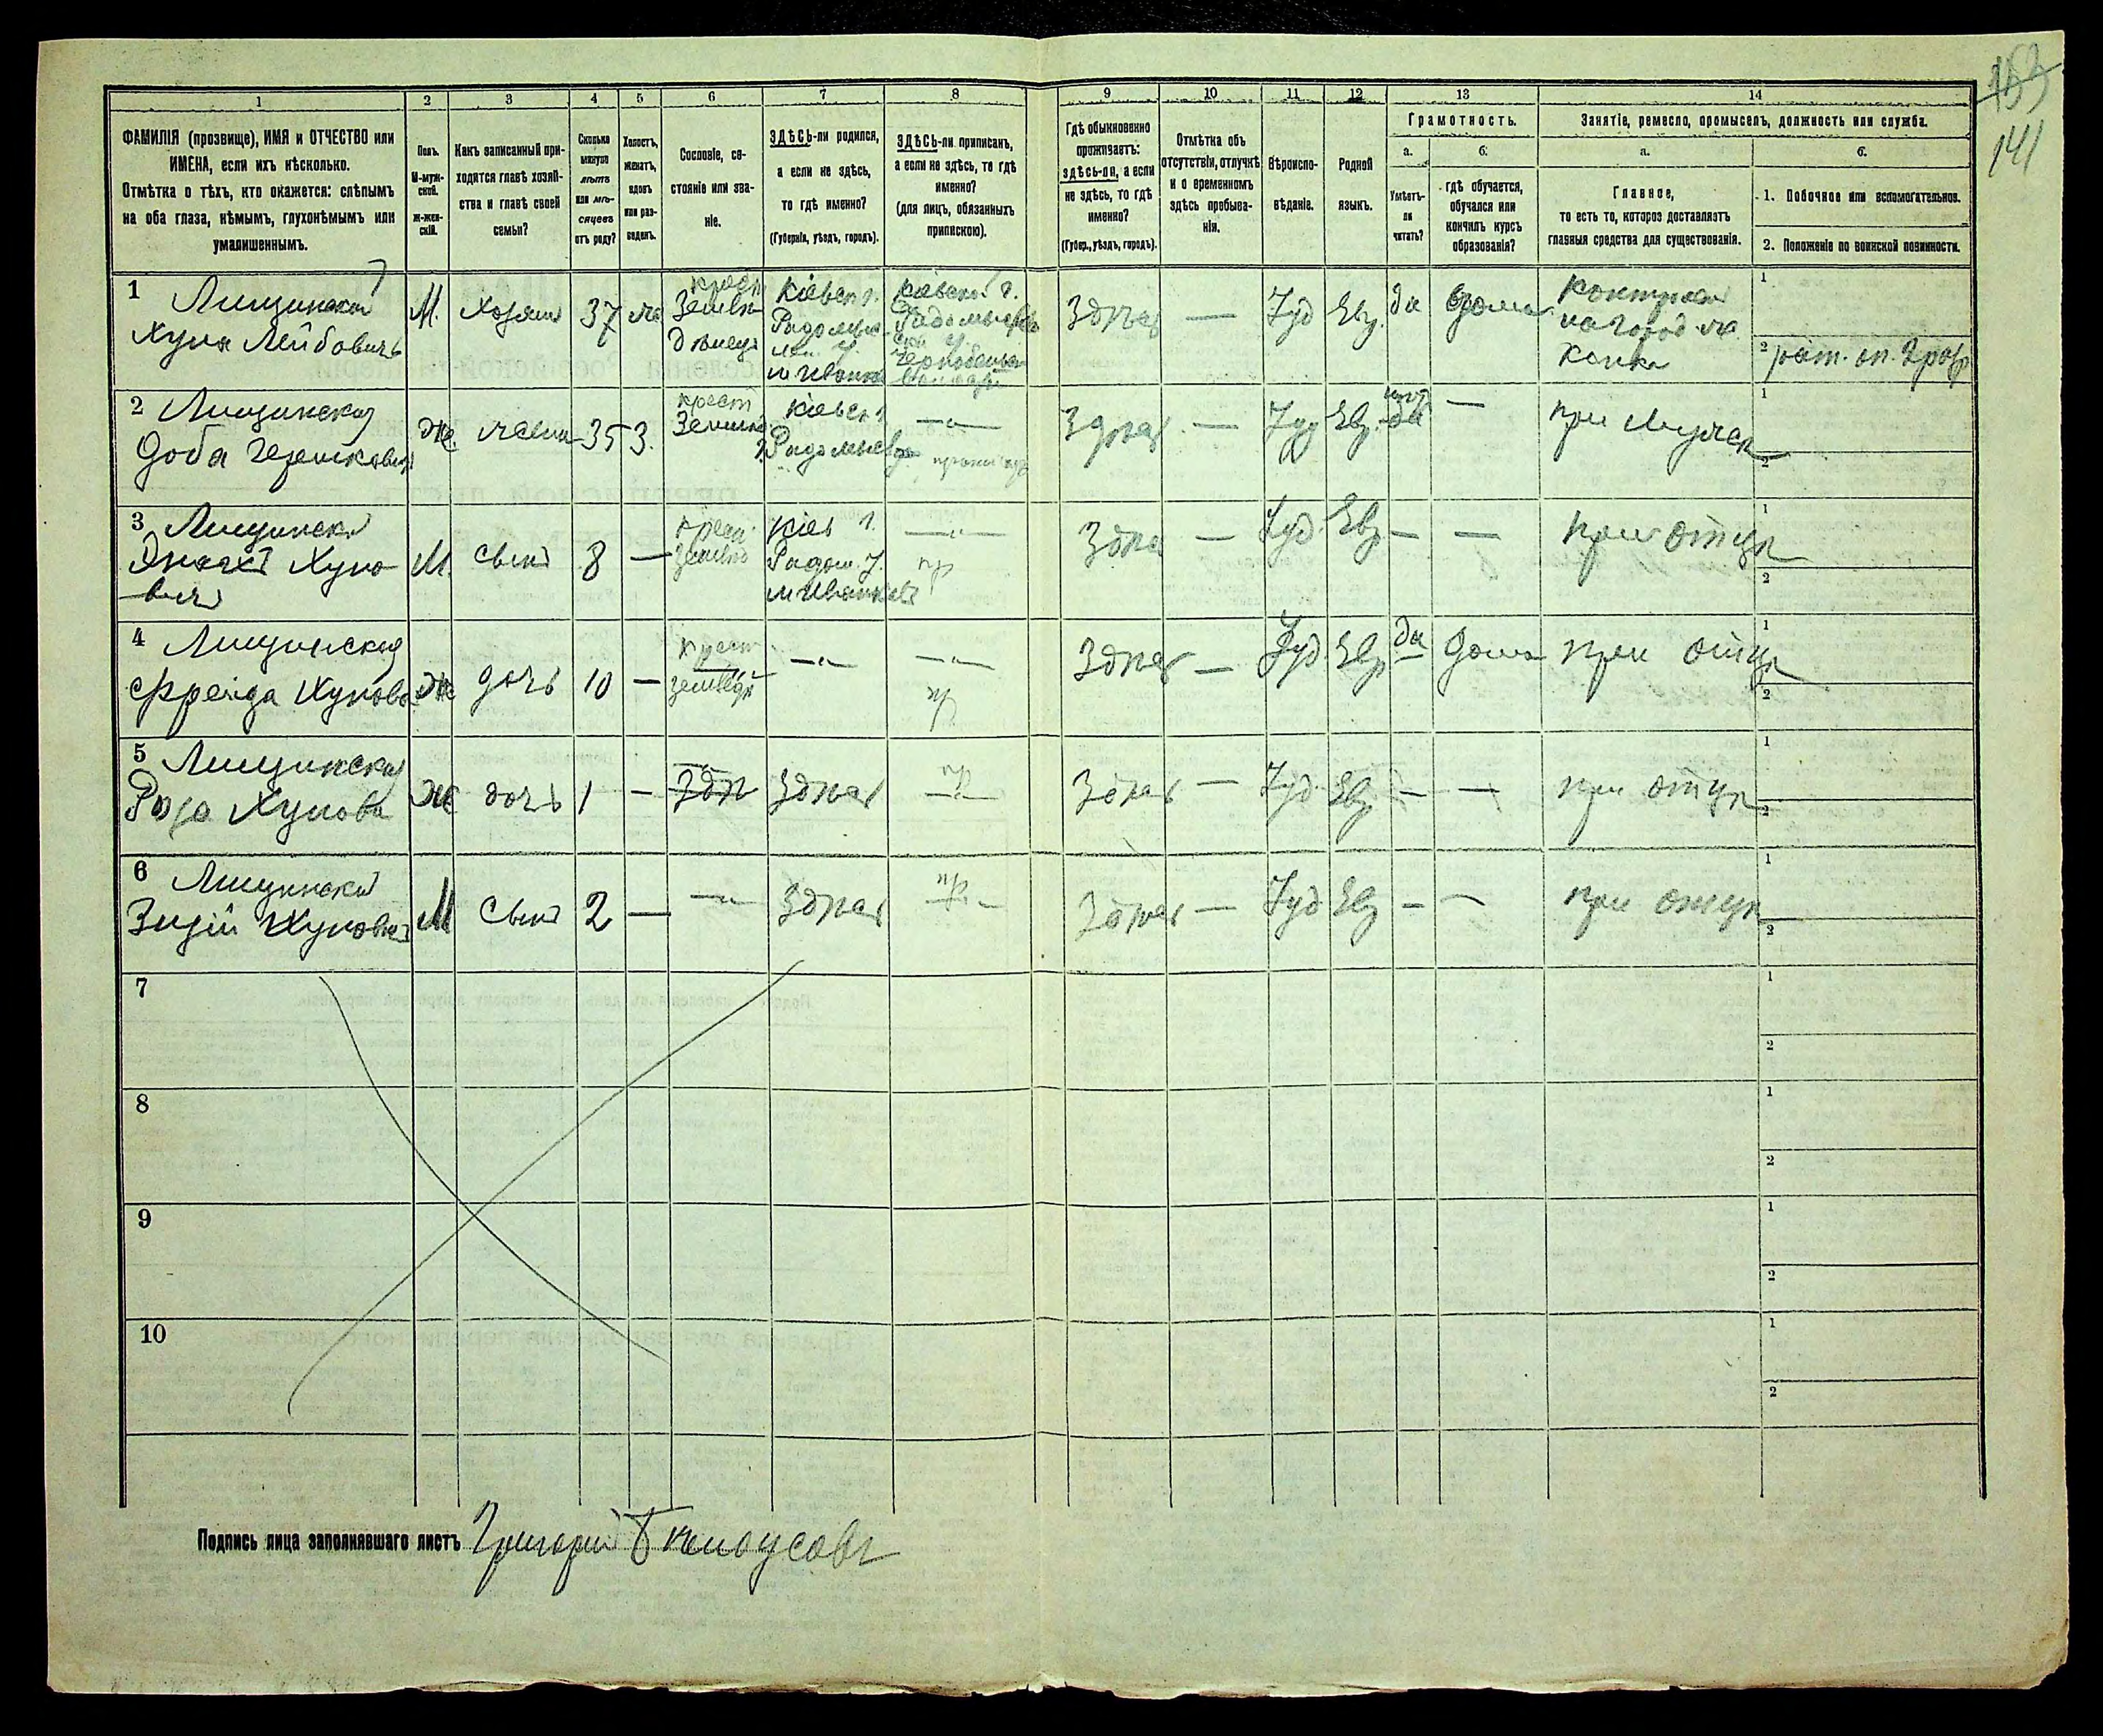 153
141
1 2 3 4 5 6 7 8 9 10 11 12 13 14
ФАМИЛІЯ (прозвище), ИМЯ и ОТЧЕСТВО или
ИМЕНА, если ихъ нѣсколько.
Отмѣтка о тѣхъ, кто окажется: слѣпымъ
на оба глаза, нѣмымъ, глухонѣмымъ или
умалишеннымъ.
Полъ.
М-муж-
ской.
Ж-жен-
скій.
Какъ записанный при-
ходится главѣ хозяй-
ства и главѣ своей
семьи?
Сколько
минуло
лѣтъ
или мѣ-
сяцевъ
отъ роду?
Холостъ,
женатъ,
вдовъ
или раз-
веденъ.
Сословіе, со-
стояніе или зва-
ніе.
ЗДѢСЬ-ли родился,
а если не здѣсь,
то гдѣ именно?
(Губернія, уѣздъ, городъ).
ЗДѢСЬ-ли приписанъ,
а если не здѣсь, то гдѣ
именно?
(для лицъ, обязанныхъ
припискою).
Гдѣ обыкновенно
проживаетъ:
здѣсь-ли, а если
не здѣсь, то гдѣ
именно?
(Губер., уѣздъ, городъ).
Отмѣтка объ
отсутствіи, отлучкѣ
и о временномъ
здѣсь пребыва-
ніи.
Вѣроиспо-
вѣданіе.
Родной
языкъ.
Грамотность.
а.
Умѣетъ-
ли
читать?
б.
гдѣ обучается,
обучался или
кончилъ курсъ
образованія?
Занятіе, ремесло, промыселъ, должность или служба.
а.
Главное,
то есть то, которое доставляетъ
главныя средства для существованія.
б.
1. Побочное или вспомогательное.
2. Положеніе по воинской повинности.
1 Лищинскій
Хуна Лейбовичъ
М. Хозяинъ 37 же
Кіевск г.
Кіевской г.
Іуд Евр. да дома
2 Лищинская
Доба Гершковна
Ж. жена 35 З.
крест
Кіевск г.
Іуд Евр. да — при мужѣ
3 Лищинскій
Хуно-
вичъ
М. сынъ 8 —
Кіев г.
Радом. у.
м Иванковъ
— Іуд Евр — — при отцѣ
4 Лищинская
Фрейда Хунова
Ж дочь 10 —
крест
—„— —„—
— Іуд Евр да Дома при отцѣ
5 Лищинская
Роза Хунова
Ж дочь 1 —
Здѣсь
Здѣсь — Іуд Евр — — при отцѣ
6 Лищинскій
Хуновичъ
М Сынъ 2 — —„— Здѣсь
Здѣсь — Іуд Евр — — при отцѣ
7
8
9
10
Подпись лица заполнявшаго листъ Григорій Бѣлоусовъ